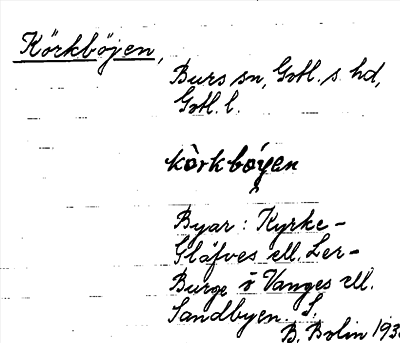 Körkböjen,
Burs sn, Gotl. s. hd,
Gotl. l.
kòrkbóyen
Byar: Kyrke-
Glåfves ell. Ler-
Burge o Vanges ell.
Sandbyen. S.
B. Bolin 193